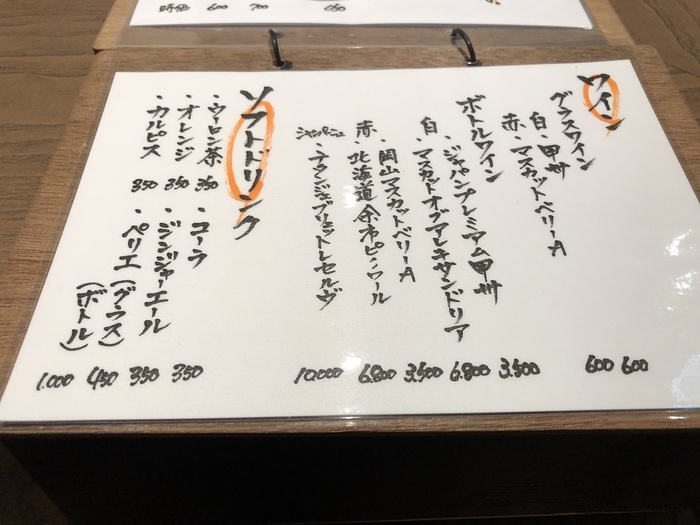 時価 600 700 650
ワイン
グラスワイン
白・甲州 600
赤・マスカットベリーA 600
ボトルワイン
白・ジャパンプレミアム甲州 3.500
・マスカットオブアレキサンドリア 6.800
赤・岡山マスカットベリーA 3.500
・北海道余市ピノノワール 6.800
シャンパーニュ・アタンジェブリュットレセルヴ 10.000
ソフトドリンク
・ウーロン茶 350 ・コーラ 350
・オレンジ 350 ・ジンジャーエール 350
・カルピス 350 ・ペリエ(グラス) 450
(ボトル) 1.000